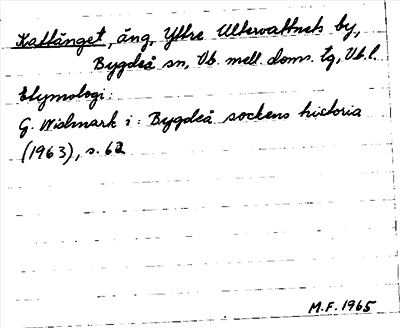 Kattänget, äng, Yttre Ultervattnets by,
Bygdeå sn, Vb. mell. doms. tg, Vb.l.
Etymologi:
G. Widmark i: Bygdeå sockens historia
(1963), s. 62
M.F. 1965